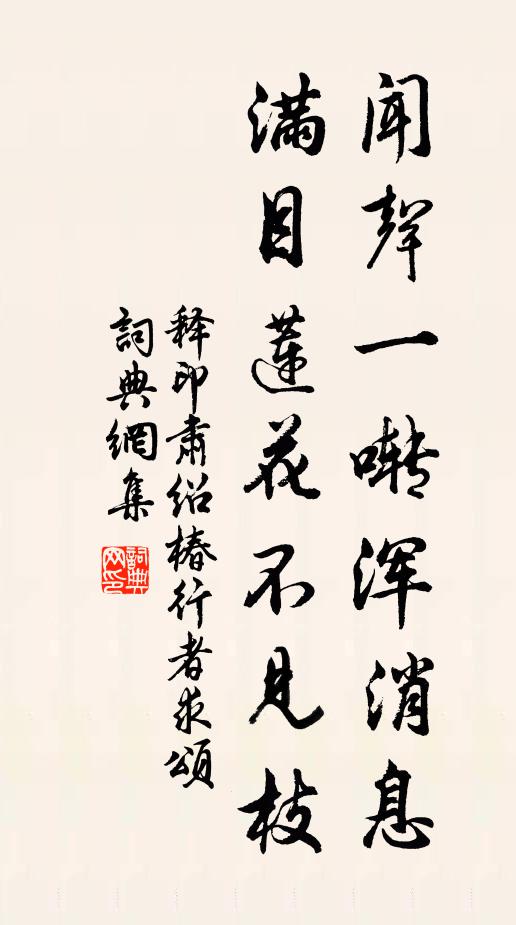 闻聲一囀浑消息
满目蓮花不见枝
释印肃绍椿行者求頌
詞典網集
詞典网印